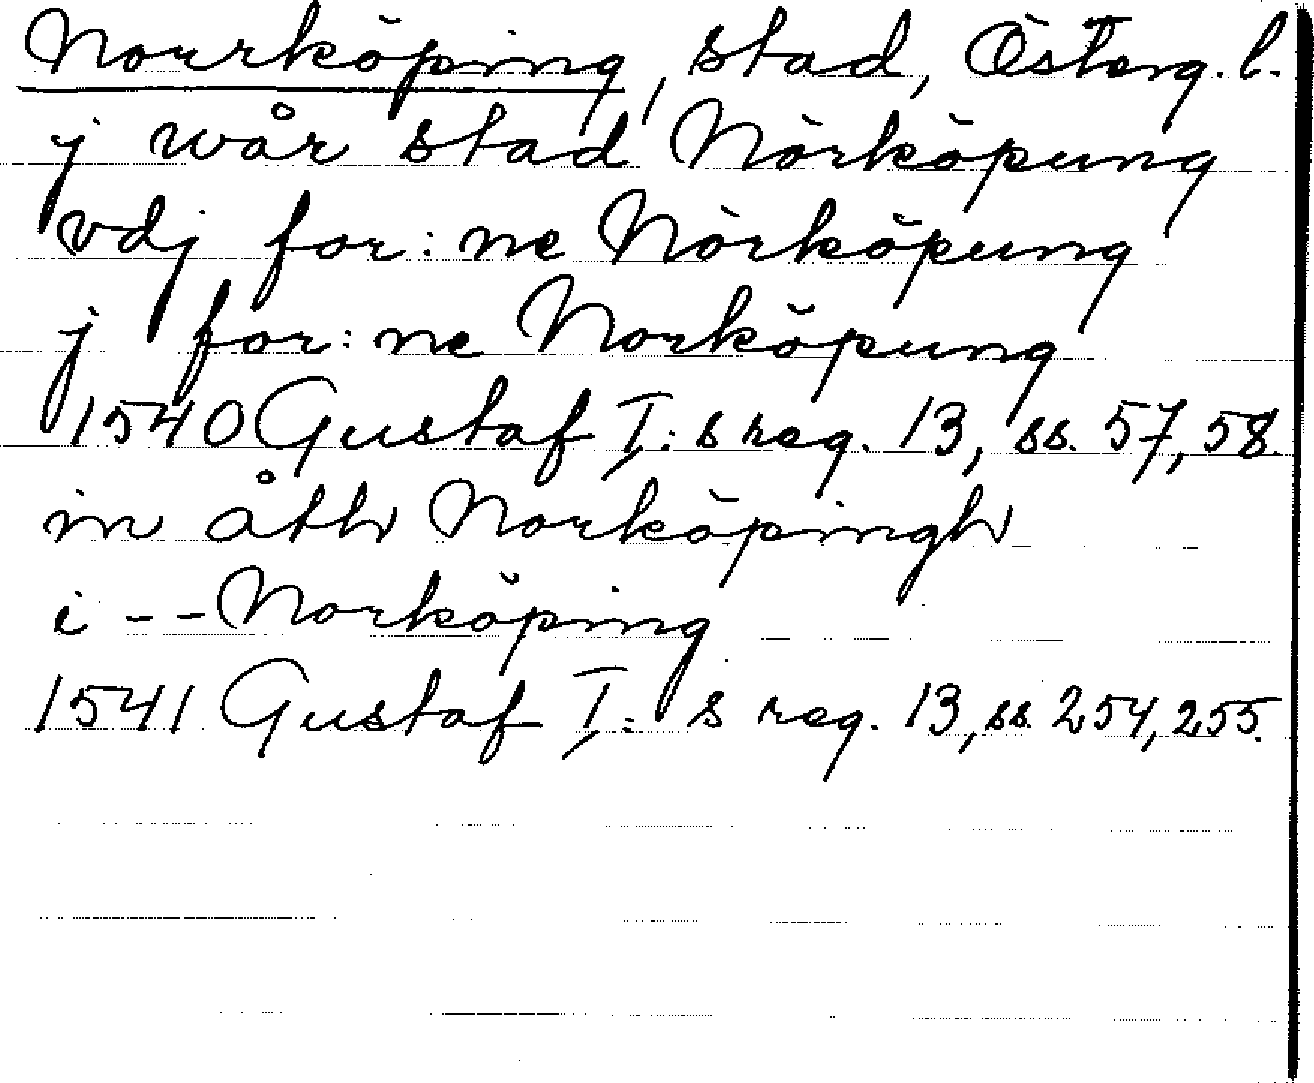 Norrköping, stad, Österg. l.
j wår stad Nörköpung
vdj for: ne Nörköpung
j for: ne Norköpung
1540 Gustaf I: s reg. 13, ss. 57, 58.
in åth Norköpingh
i -- Norköping
1541 Gustaf I: s reg. 13, ss. 254, 255.